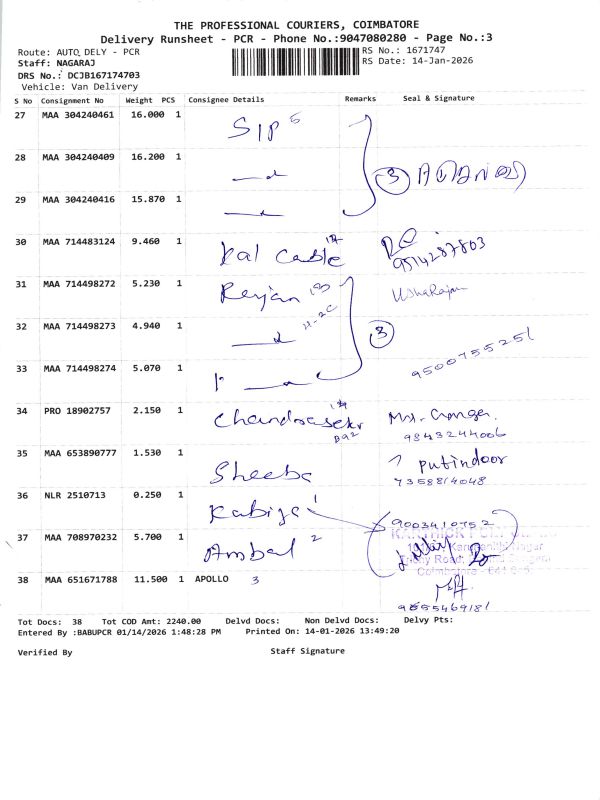 THE PROFESSIONAL COURIERS, COIMBATORE
Delivery Runsheet - PCR - Phone No.:9047080280 - Page No.:3
Route: AUTO DELY - PCR
RS No.: 1671747
Staff: NAGARAJ
RS Date: 14-Jan-2026
DRS No.: DCJB167174703
Vehicle: Van Delivery
S No Consignment No Weight PCS Consignee Details Remarks Seal & Signature
27 MAA 304240461 16.000 1 SIP
28 MAA 304240409 16.200 1
3
29 MAA 304240416 15.870 1
30 MAA 714483124 9.460 1 Kal Cable 9514287803
31 MAA 714498272 5.230 1 UshaRajan
32 MAA 714498273 4.940 1 3
33 MAA 714498274 5.070 1 9500755251
34 PRO 18902757 2.150 1 Chandrasekr
9843244006
35 MAA 653890777 1.530 1 Sheeba putindoor
7358814048
36 NLR 2510713 0.250 1 9003410752
37 MAA 708970232 5.700 1 Ambal 2
38 MAA 651671788 11.500 1 APOLLO 3
Tot Docs: 38 Tot COD Amt: 2240.00 Delvd Docs: Non Delvd Docs: Delvy Pts:
Entered By :BABUPCR 01/14/2026 1:48:28 PM Printed On: 14-01-2026 13:49:20
Verified By Staff Signature